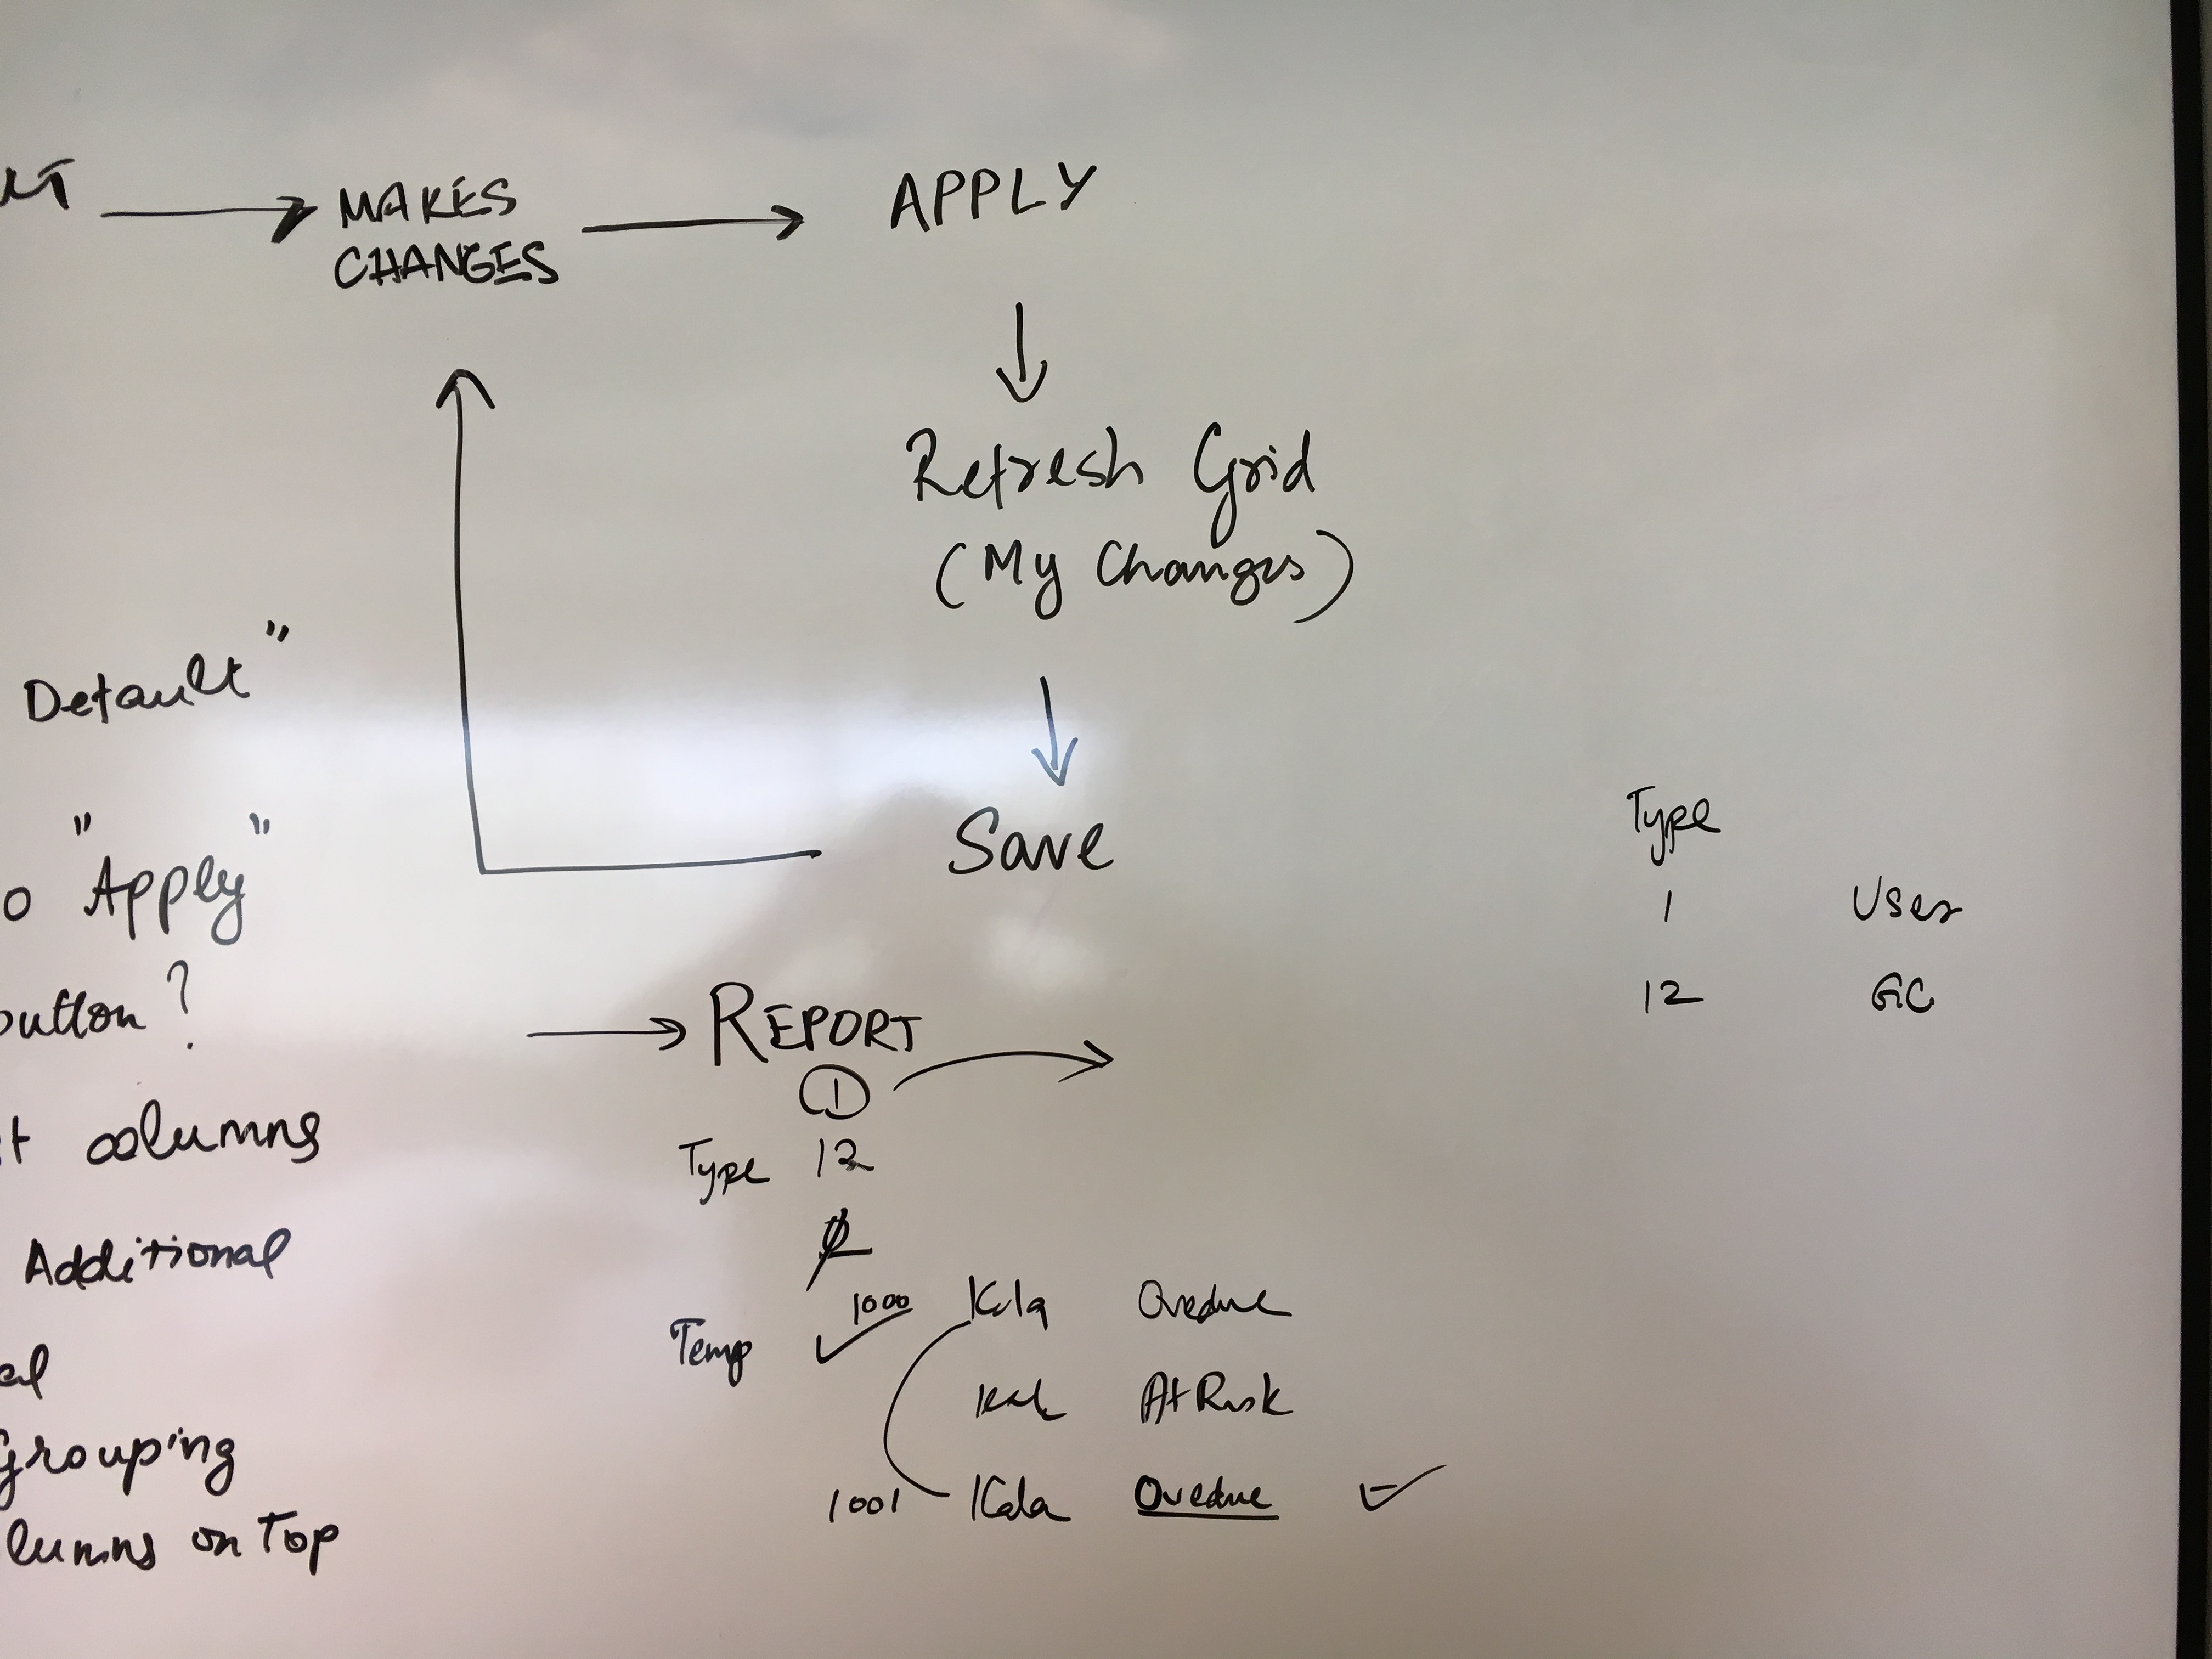 MAKES
CHANGES
APPLY
Refresh Grid
(My Changes)
Save
Default"
"Apply"
button?
columns
Additional
Grouping
on Top
REPORT
1
Type 12
Temp 1000 Kala Overdue
At Risk
1001 Kala Overdue
Type
1 User
12 GC